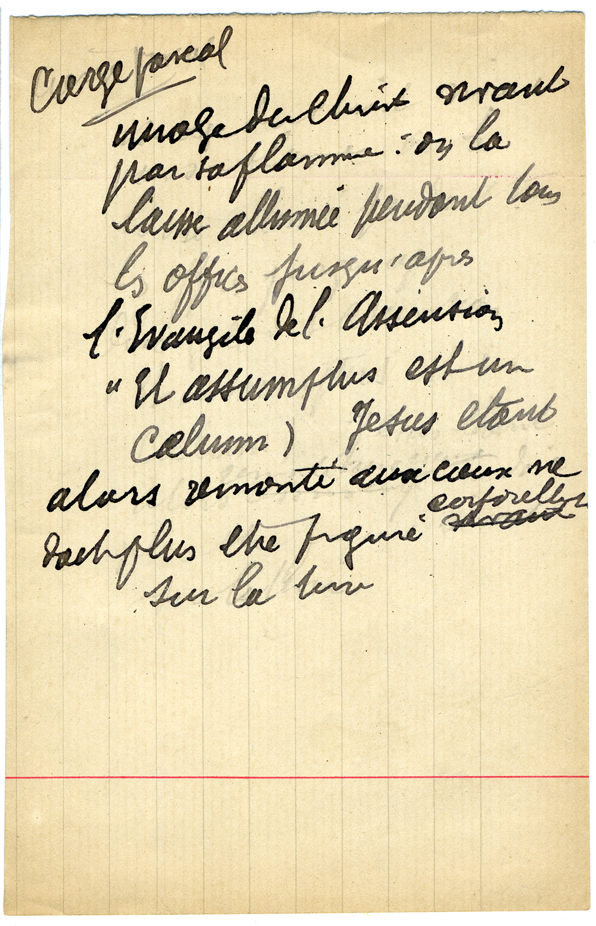 Cierge pascal
image du Christ vivant
par sa flamme : on la
laisse allumée pendant tous
les offices jusqu'apres
l'Evangile de l'Assension
"Et assumptus est un
Cælum) Jesus etant
alors remonté aux cieux ne
corporellem
doit plus etre figuré vivant
sur la terre